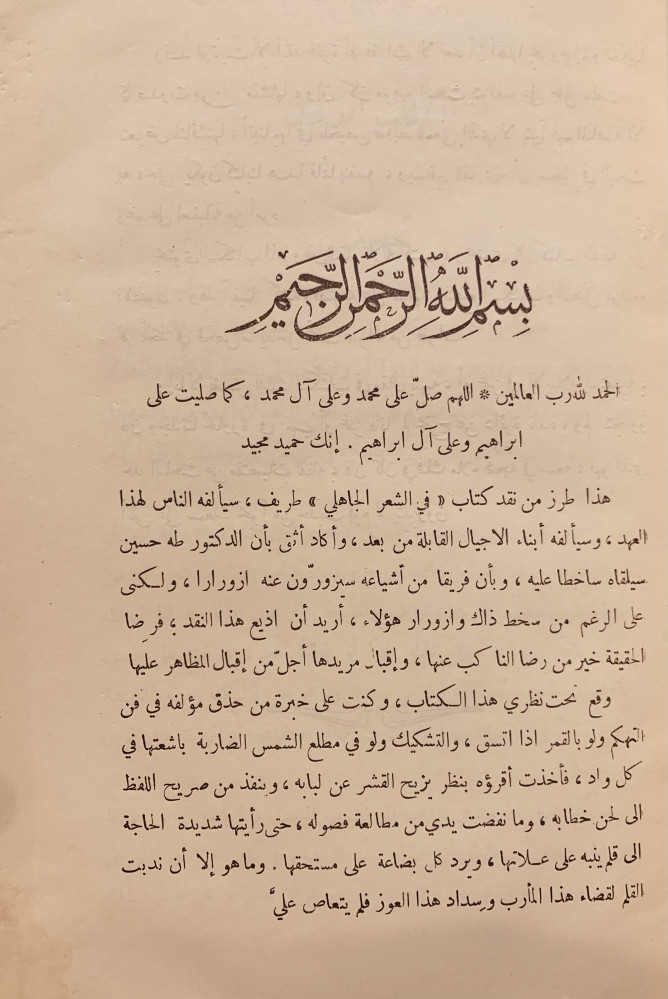 بِسْمِ اللَّهِ الرَّحْمَٰنِ الرَّحِيمِ
الحمد لله رب العالمين * اللهم صلّ على محمد وعلى آل محمد ، كما صليت على
ابراهيم وعلى آل ابراهيم . إنك حميد مجيد
هذا طرز من نقد كتاب « في الشعر الجاهلي » طريف ، سيألفه الناس لهذا
العهد ، وسيألفه أبناء الاجيال القابلة من بعد ، وأكاد أثق بأن الدكتور طه حسين
سيلقاه ساخطا عليه ، وبأن فريقا من أشياعه سيزورّون عنه ازورارا ، ولكنى
على الرغم من سخط ذاك وازورار هؤلاء ، أريد أن اذيع هذا النقد ؛ فرضا
الحقيقة خير من رضا الناكب عنها ، وإقبال مريدها أجلّ من إقبال المظاهر عليها
وقع تحت نظري هذا الكتاب ، وكنت على خبرة من حذق مؤلفه في فن
التهكم ولو بالقمر اذا اتسق ، والتشكيك ولو في مطلع الشمس الضاربة باشعتها في
كل واد ، فأخذت أقرؤه بنظر يزيح القشر عن لبابه ، وينفذ من صريح اللفظ
الى لحن خطابه ، وما نفضت يدي من مطالعة فصوله ، حتى رأيتها شديدة الحاجة
الى قلم ينبه على علاتها ، ويرد كل بضاعة على مستحقها . وما هو إلا أن ندبت
القلم لقضاء هذا المأرب وسداد هذا العوز فلم يتعاص عليَّ